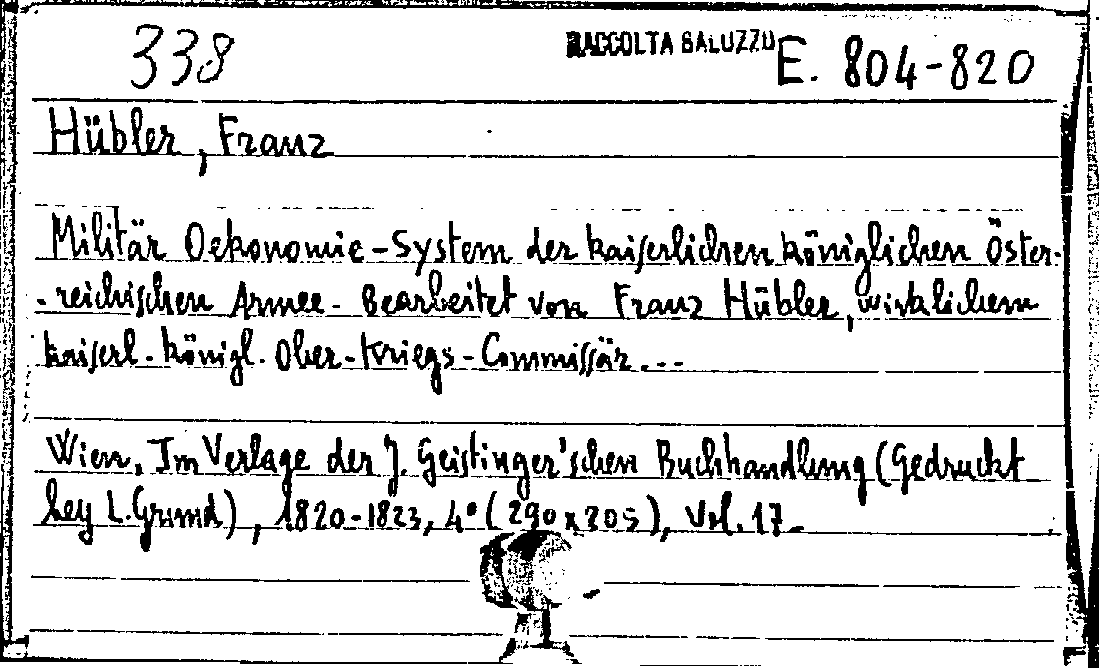 338 RACCOLTA SALUZZO E. 804-820
Hübler, Franz
Militär Oekonomie-System der kaiserlichen königlichen Öster-
-reichischen Armee. Bearbeitet von Franz Hübler, wirklichem
kaiserl. königl. Ober-Kriegs-Commissär...
Wien, Im Verlage der J. Geistinger'schen Buchhandlung (Gedruckt
bey L. Grund), 1820-1823, 4° (290x205), Vol. 17.